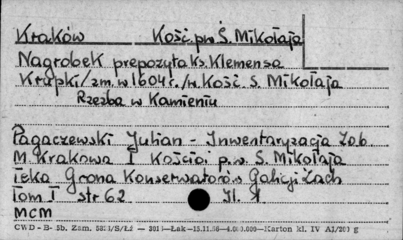 Kraków Kość. pw. Ś. Mikołaja
Nagrobek prepozyta Ks. Klemensa
Krupki /zm. w 1604 r./ w Kość. S. Mikołaja
Rzeźba w Kamieniu
Pagaczewski Julian - Inwentaryzacja Zab.
M. Krakowa I Kościoł p.w. S. Mikołaja
Teka Grona Konserwatorów Galicji Zach
Tom I str 62 Il. 1
MCM
CWD-B- 5b. Zam. 5823/S/Łż — 3013—Łak—15.11.50—4.000.000—Karton kl. IV A1/200 g